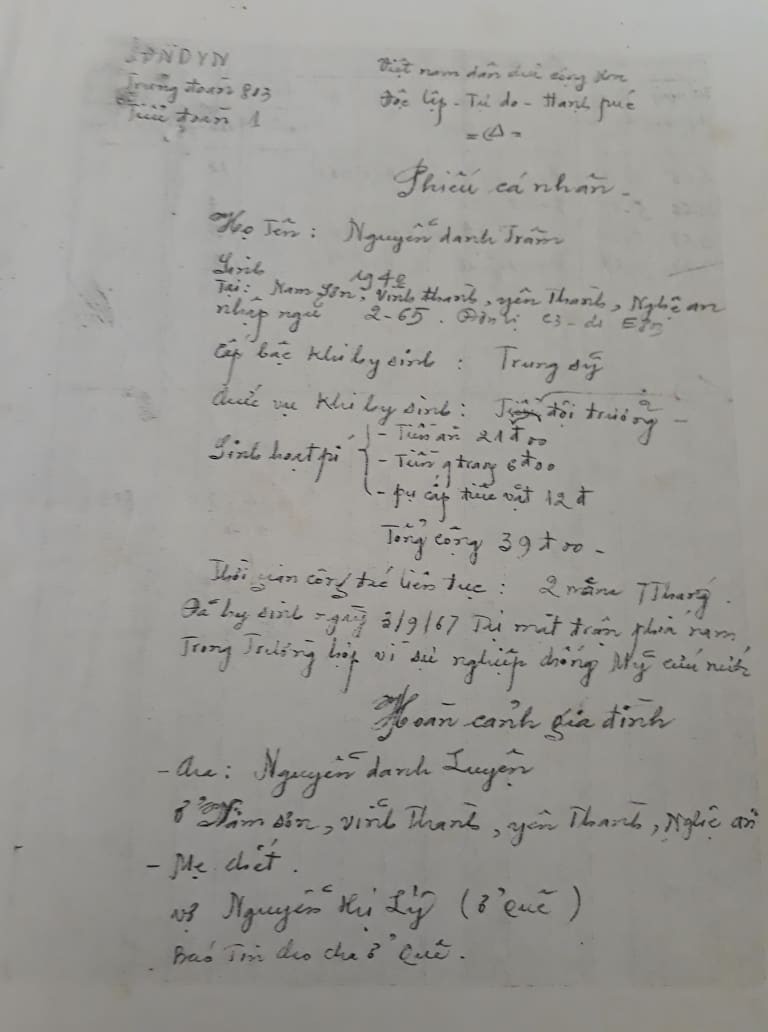 QĐNDVN
Trung đoàn 803
Tiểu đoàn 1
Việt nam dân chủ cộng hòa
Độc lập - Tự do - Hạnh púc
Phiếu cá nhân -
Họ Tên: Nguyễn danh Trâm
Sinh 1942
Tại: Nam Sơn, Vĩnh thành, yên Thành, Nghệ an
nhập ngũ 2-65. Đơn vị C3-
Cấp bậc khi hy sinh: Trung sỹ
Chức vụ khi hy sinh: đội trưởng -
Sinh hoạt pí
- Tiền ăn 21đ00
- Tiền 6đ00
- pụ cấp tiêu vặt 12đ
Tổng cộng 39đ00 -
Thời gian công tác liên tục: 2 năm 7 Tháng.
Đã hy sinh ngày 3/9/67 Tại mặt trận phía nam
Trong Trường hợp vì sự nghiệp chống Mỹ cứu nước
Hoàn cảnh gia đình
- Cha: Nguyễn danh Luyện
ở Nam sơn, vĩnh Thành, yên Thành, Nghệ an
- Mẹ chết.
vợ Nguyễn thị Lý (ở quê)
Báo Tin cho cha ở quê.